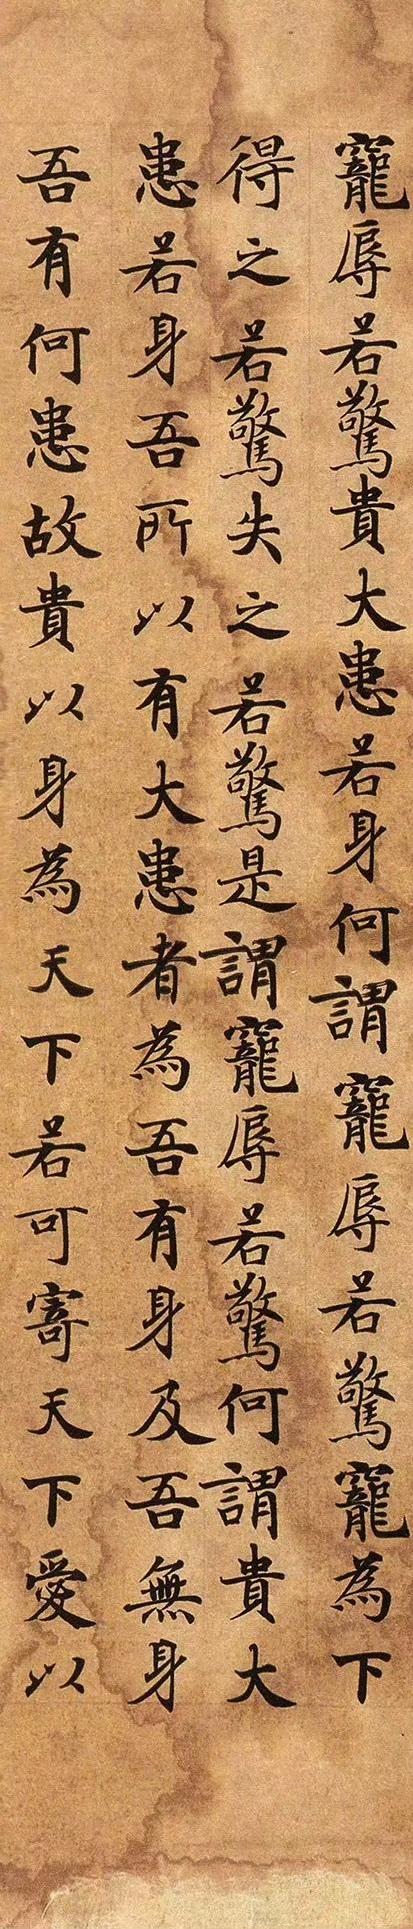 寵辱若驚貴大患若身何謂寵辱若驚寵為下
得之若驚失之若驚是謂寵辱若驚何謂貴大
患若身吾所以有大患者為吾有身及吾無身
吾有何患故貴以身為天下若可寄天下愛以